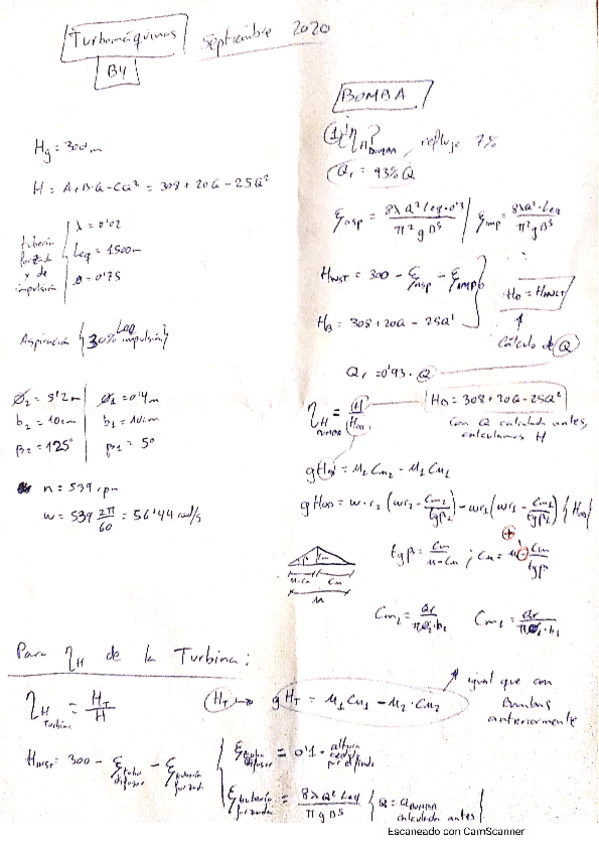 Turbomáquinas Septiembre 2020
B4
Hg = 300 m
H = A+B·Q-CQ² = 308+20Q-25Q²
tubería forzada y de impulsión
λ = 0'02
Leq = 1500m
Ø = 0'75
Aspiración {30% Leq impulsión}
Ø2 = 5'2m Ø1 = 0'4m
b2 = 10cm b1 = 10cm
β2 = 125° β1 = 5°
n = 539 rpm
w = 539 2π/60 = 56'44 rad/s
BOMBA
① ¿ηH BOMBA? reflujo 7%
Qr = 93% Q
ξasp = 8λQ²Leq·0'3/π²gD⁵ | ξimp = 8λQ²·Leq/π²gD⁵
HINST = 300 - ξasp - ξimp
HB = HINST
HB = 308+20Q-25Q²
Cálculo de Q
Qr = 0'93·Q
ηH BOMBA = H/H∞
HB = 308+20Q-25Q²
Con Q calculado antes,
calculamos H
gH∞ = u2 Cu2 - u1 Cu1
gH∞ = w·r2 (wr2 - Cm2/tgβ2) - wr1 (wr1 - Cm1/tgβ1) {H∞}
tgβ = Cm/u-Cu ; Cu = u - Cm/tgβ
+
β Cm
u-Cu Cu
u
Cm2 = Qr/πØ2·b2 Cm1 = Qr/πØ1·b1
Para ηH de la Turbina:
ηH Turbina = HT/H
HT → gHT = u1 Cu1 - u2·Cu2
igual que con
Bombas
anteriormente
HINST = 300 - ξtubo difusor - ξtubería forzada
ξtubo difusor = 0'1·altura
ξtubería forzada = 8λQ²Leq/πgD⁵ {Q = QBOMBA calculada antes}
Escaneado con CamScanner